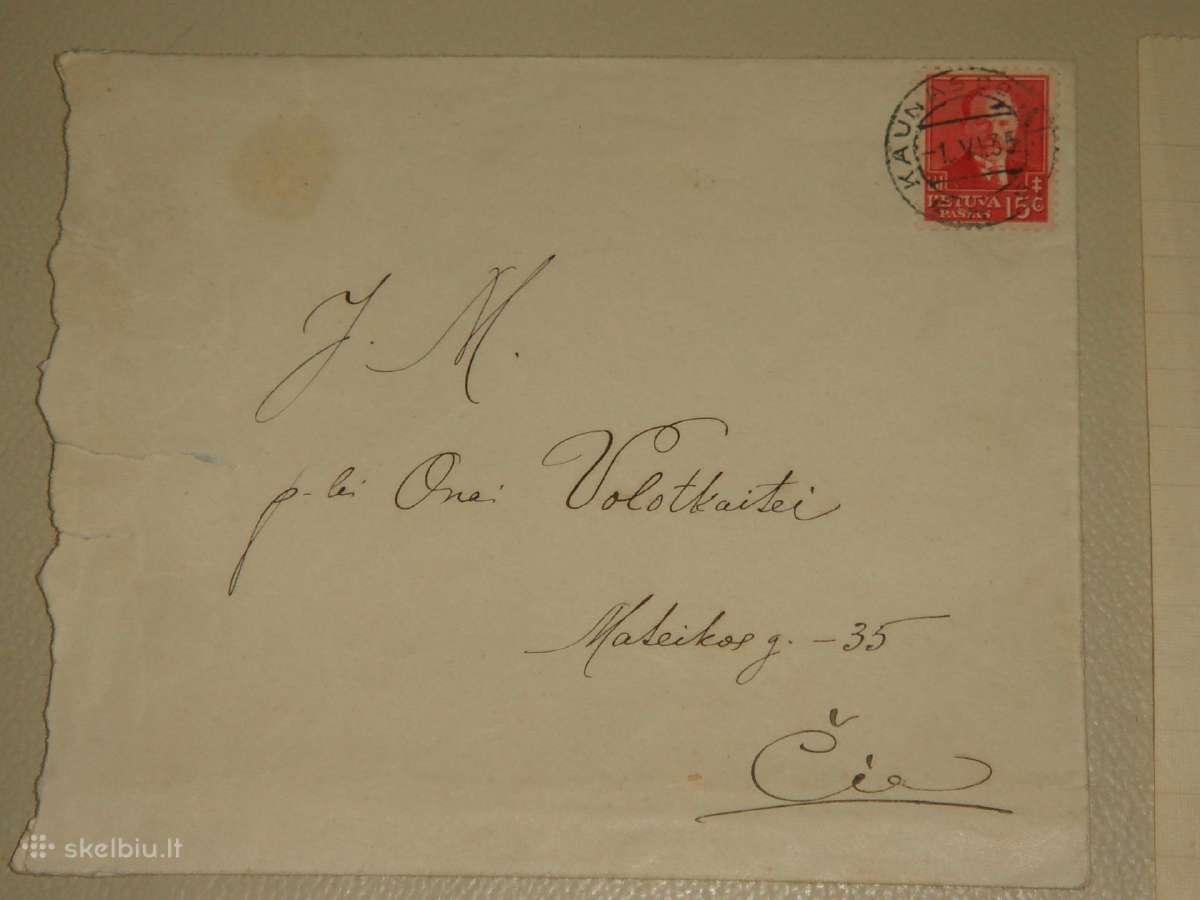 KAUNAS
-1.VI.35
LIETUVA 15 C
PAŠTAS
J. M.
p-lei Onei Volotkaitei
Mateikos g. - 35
Čia
skelbiu.lt